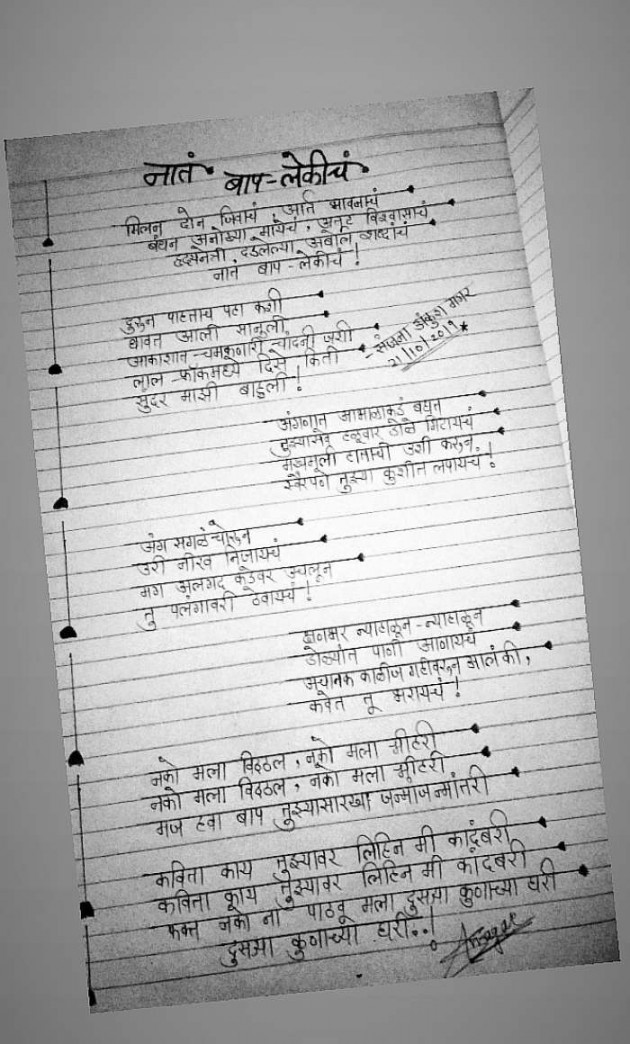 नातं बाप-लेकीचं
मिलन दोन जिवाचं, आर्त भावनाचं
बंधन अनोख्या मायेचं, अतुट विश्वासाचं
हृदयनेत्री, दडलेल्या अबोल शब्दांचं
नातं बाप-लेकीचं!
दुरुन पाहताच पहा कशी
धावत आली सानुली,
आकाशात-चमकणारी चांदनी जशी
लाल-फ्रॉकमध्ये दिसे किती
सुंदर माझी बाहुली!
- संजना अंकुश मगर
21/10/2019
अंगणात आभाळाकडं बघत
तुझ्यासवे हळूवार डोळे मिटायचं
मखमूली हाताची उशी करुन,
स्वैरपणे तुझ्या कुशीत लपायचं!
अंग सगळं चोरुन
उरी नीरव निजायचं
मग अलगद कडेवर उचलून
तु पलंगावरी ठेवायचं!
क्षणभर न्याहाळून-न्याहाळून
डोळ्यांत पाणी आणायचं
अचानक काळीज गहीवरुन आलं की,
कवेत तू भरायचं!
नको मला विठ्ठल, नको मला श्रीहरी
नको मला विठ्ठल, नको मला श्रीहरी
मज हवा बाप तुझ्यासारखा जन्मोजन्मांतरी
कविता काय तुझ्यावर लिहिन मी कादंबरी
कविता काय तुझ्यावर लिहिन मी कादंबरी
फक्त नको ना पाठवू मला दुसऱ्या कुणाच्या घरी
दुसऱ्या कुणाच्या घरी..!